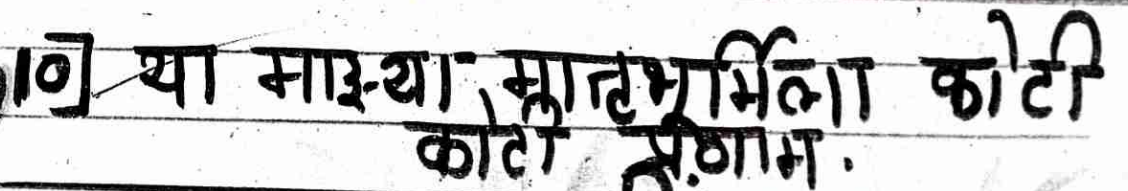 10] या माझ्या मातृभूमिला कोटी
कोटी प्रणाम.